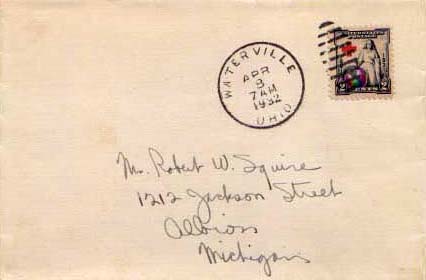 WATERVILLE
APR
8
7AM
1932
OHIO
2 CENTS 2
Mr. Robert W. Squire
1212 Jackson Street
Albion
Michigan